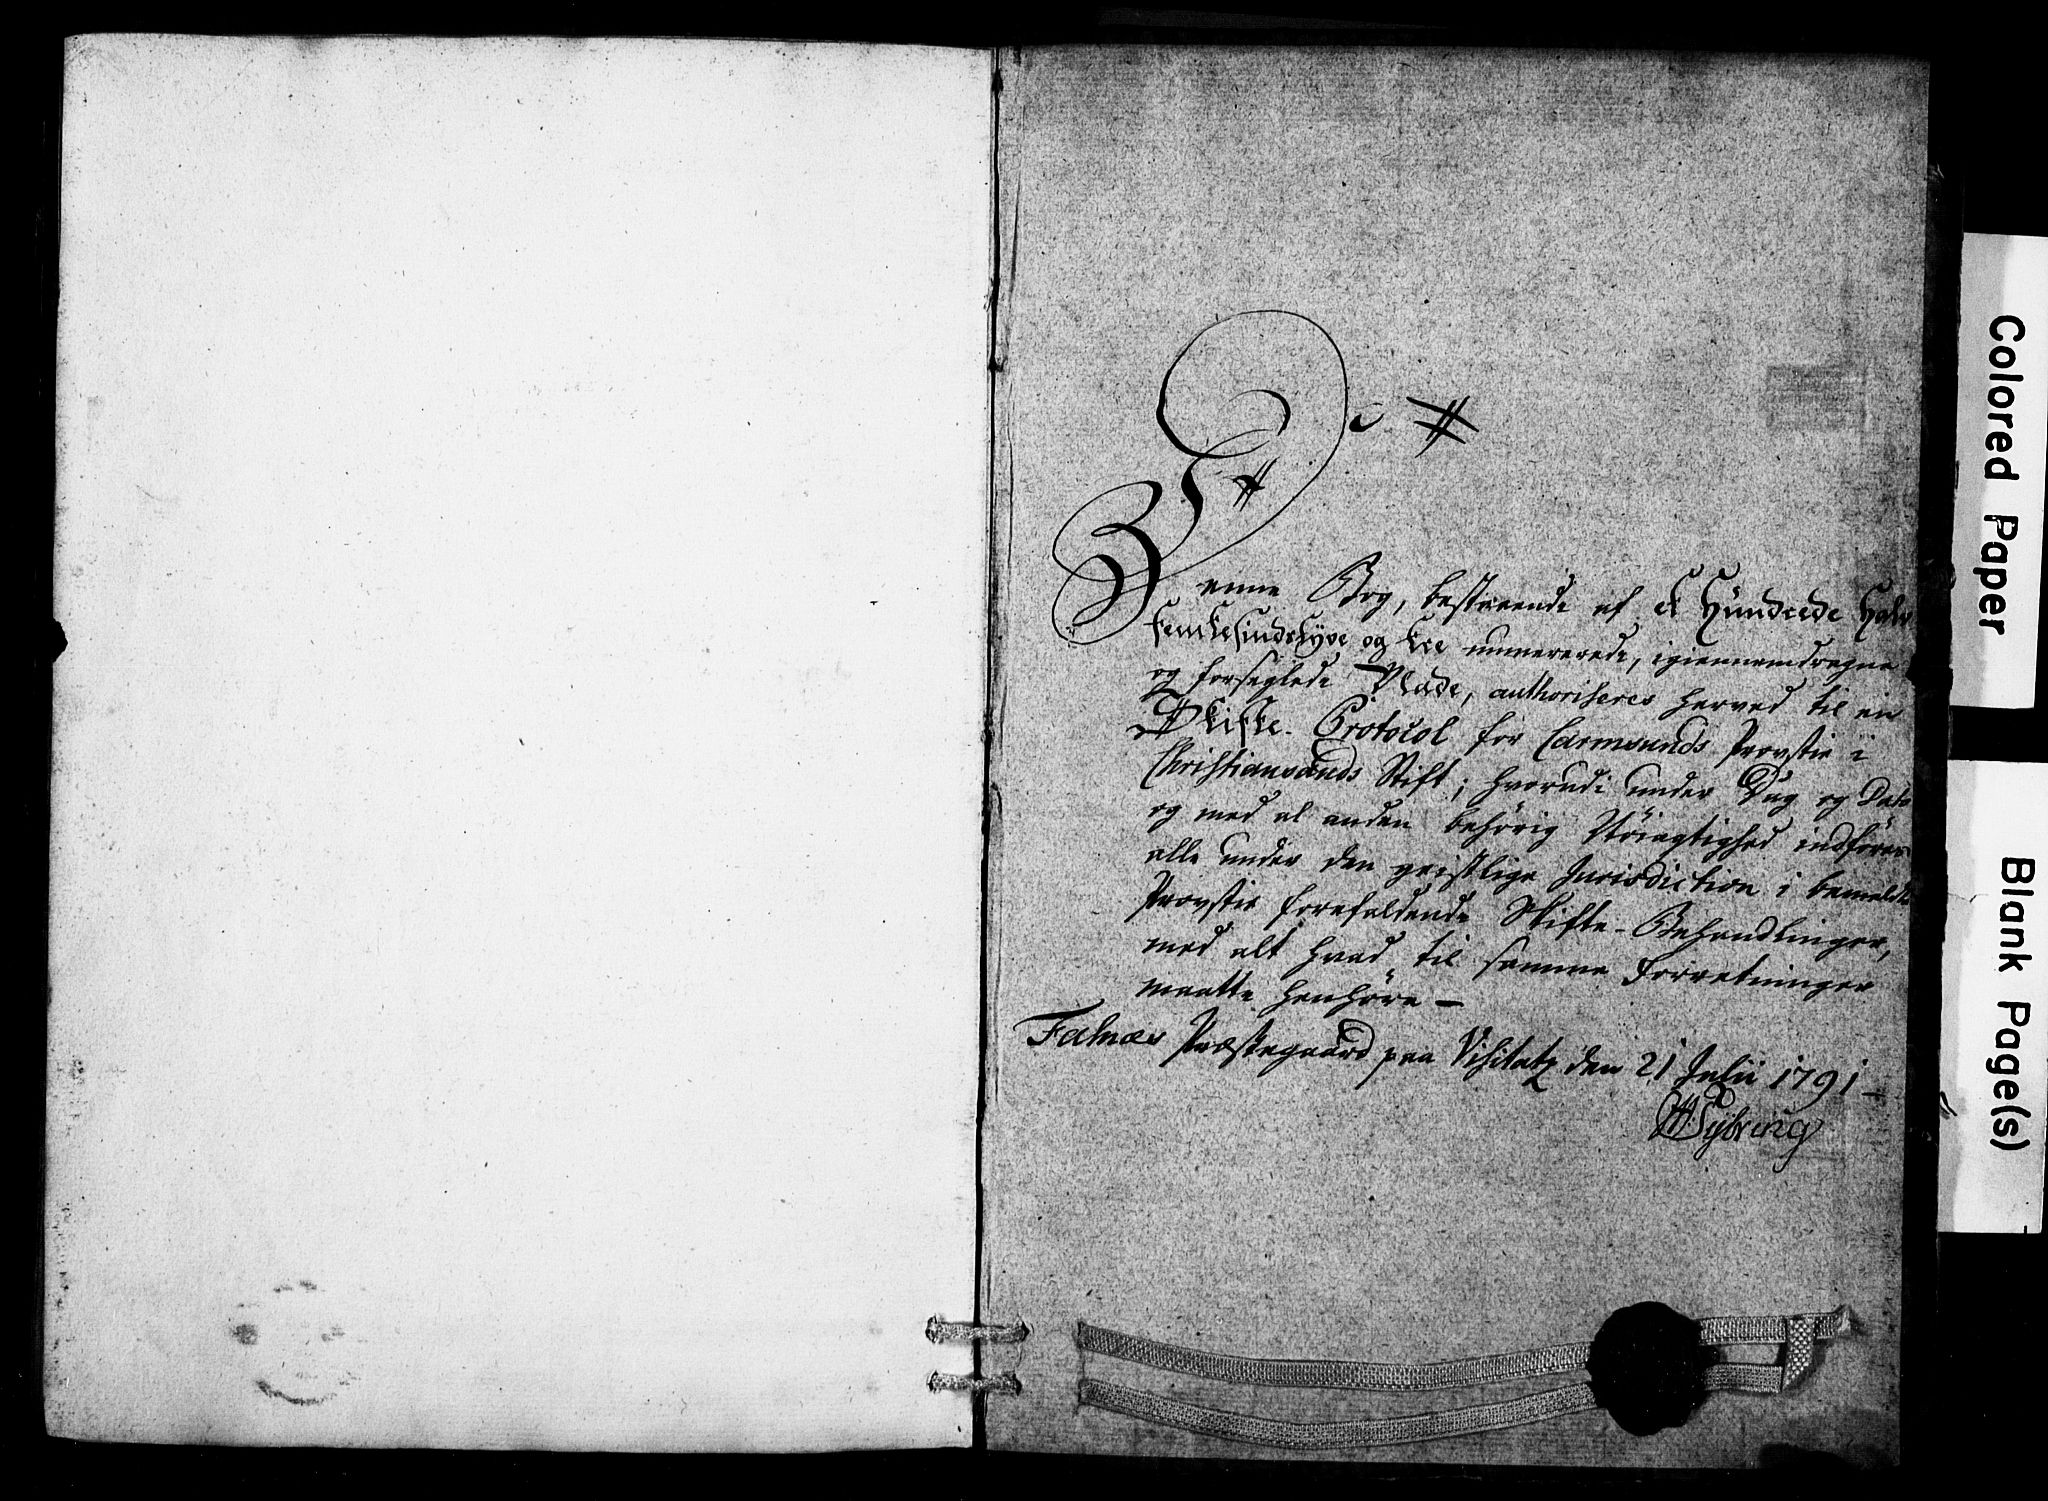 Denne Bog, bestaaende af et Hundrede Halv
femtesindstyve og tre numererede, igiennemdragne
og forseglede Blade, authoriseres herved til en
Skifte-Protocol for Carmsunds Provstie i
Christiansands Stift; hvorudi under Dag og Dato
og med al anden behörig Nöiagtighed indföres
alle under den geistlige Jurisdiction i bemeldte
Provstie forefaldende Skifte-Behandlinger,
med alt hvad til samme Forretninger
maatte henhöre —
Falnæs Præstegaard paa Visitatz den 21 Julii 1791 —
Tybring
Colored Paper
Blank Page(s)